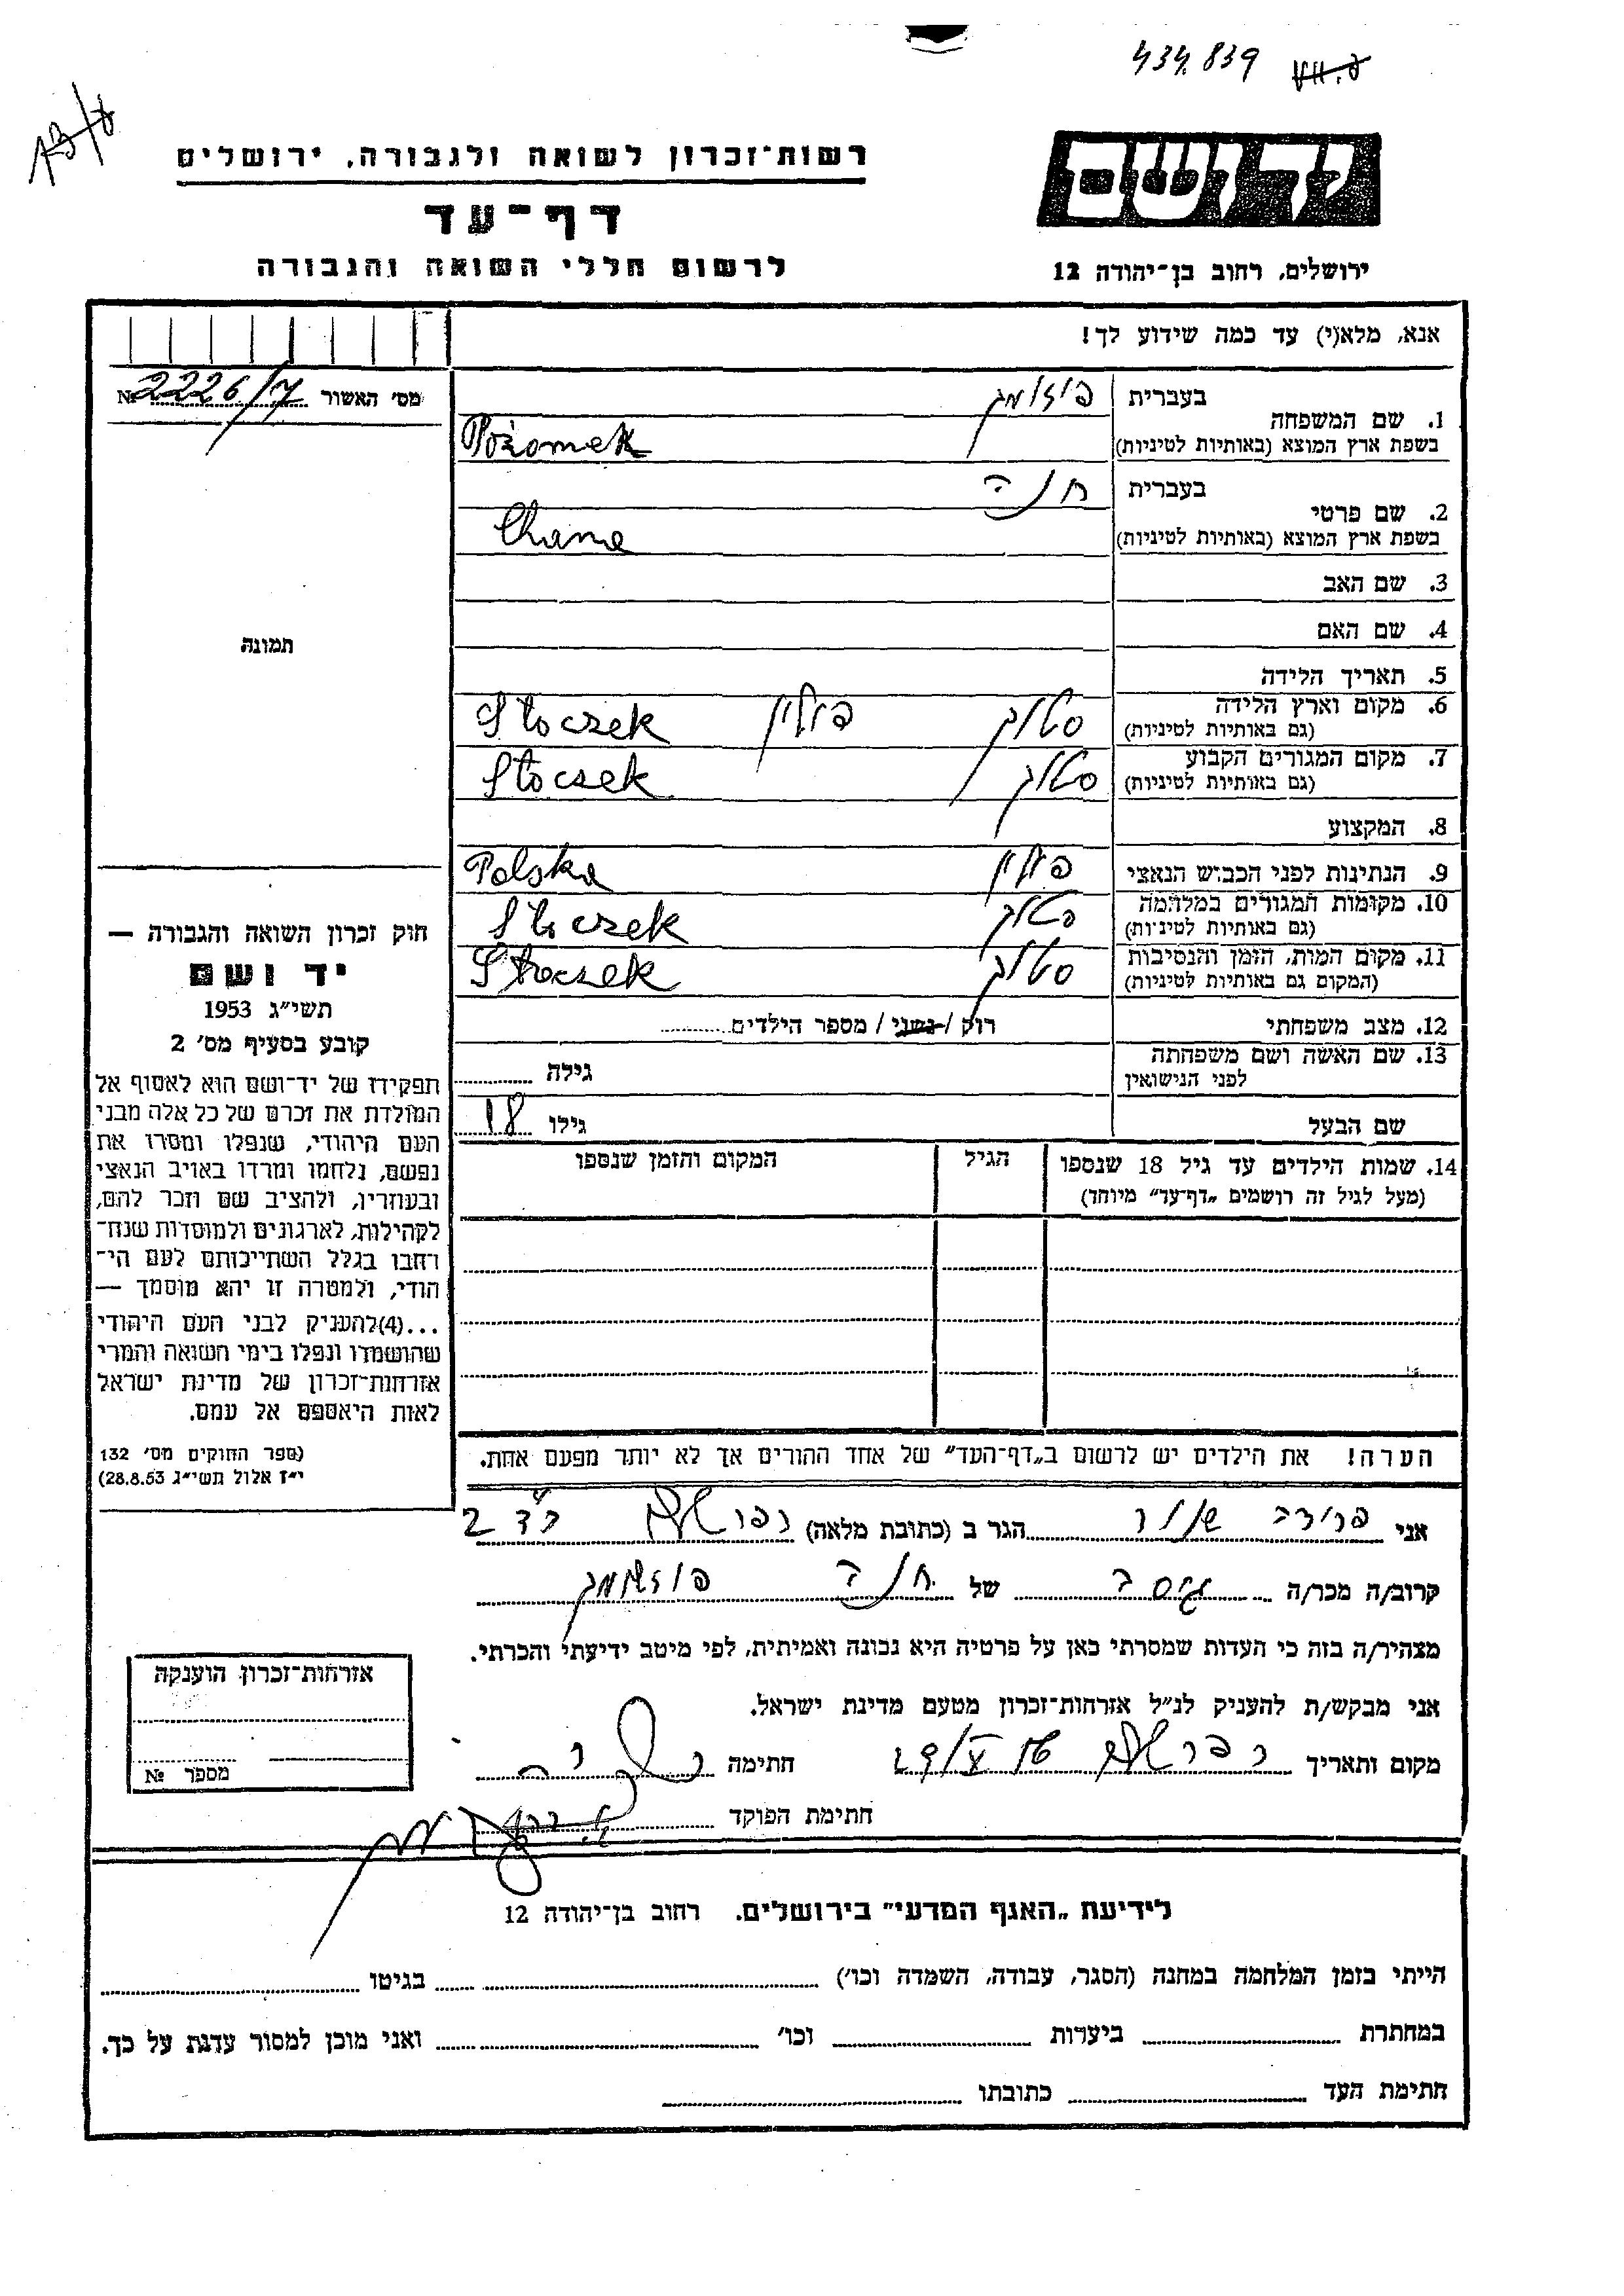 434.839
רשות־זכרון לשואה ולגבורה, ירושלים
יד ושם
דף־עד
לרשום חללי השואה והגבורה
ירושלים, רחוב בן־יהודה 12
אנא, מלא(י) עד כמה שידוע לך!
מס' האשור № 2226/7
1. שם המשפחה בעברית פוזומק
בשפת ארץ המוצא (באותיות לטיניות) Pożomek
2. שם פרטי בעברית חנה
בשפת ארץ המוצא (באותיות לטיניות) Chana
3. שם האב
4. שם האם
תמונה
5. תאריך הלידה
6. מקום וארץ הלידה (גם באותיות לטיניות) סטוק פולין Stoczek
7. מקום המגורים הקבוע (גם באותיות לטיניות) סטוק Stocsek
8. המקצוע
9. הנתינות לפני הכבוש הנאצי פולין Polska
10. מקומות המגורים במלחמה (גם באותיות לטיניות) סטוק Stoczek
11. מקום המות, הזמן והנסיבות (המקום גם באותיות לטיניות) סטוק Stoczek
12. מצב משפחתי רוק / נשוי / מספר הילדים
13. שם האשה ושם משפחתה לפני הנישואין גילה
שם הבעל גילו 18
14. שמות הילדים עד גיל 18 שנספו (מעל לגיל זה רושמים „דף־עד" מיוחד) הגיל המקום והזמן שנספו
חוק זכרון השואה והגבורה —
יד ושם
תשי"ג 1953
קובע בסעיף מס' 2
תפקידו של יד־ושם הוא לאסוף אל
המולדת את זכרם של כל אלה מבני
העם היהודי, שנפלו ומסרו את
נפשם, נלחמו ומרדו באויב הנאצי
ובעוזריו, ולהציב שם וזכר להם,
לקהילות, לארגונים ולמוסדות שנח־
רחבו בגלל השתייכותם לעם הי־
הודי, ולמטרה זו יהא מוסמך —
...(4)להעניק לבני העם היהודי
שהושמדו ונפלו בימי השואה והמרי
אזרחות־זכרון של מדינת ישראל
לאות היאספם אל עמם.
(ספר החוקים מס' 132
י"ז אלול תשי"ג 28.8.53)
הערה! את הילדים יש לרשום ב„דף־העד" של אחד ההורים אך לא יותר מפעם אחת.
אני הגר ב (כתובת מלאה)
קרוב/ה מכר/ה של חנה פוזומק
מצהיר/ה בזה כי העדות שמסרתי כאן על פרטיה היא נכונה ואמיתית, לפי מיטב ידיעתי והכרתי.
אני מבקש/ת להעניק לנ"ל אזרחות־זכרון מטעם מדינת ישראל.
מקום ותאריך חתימה
חתימת הפוקד
אזרחות־זכרון הוענקה
מספר №
לידיעת „האגף המדעי" בירושלים. רחוב בן־יהודה 12
הייתי בזמן המלחמה במחנה (הסגר, עבודה, השמדה וכו') בגיטו
במחתרת ביערות וכו' ואני מוכן למסור עדות על כך.
חתימת העד כתובתו